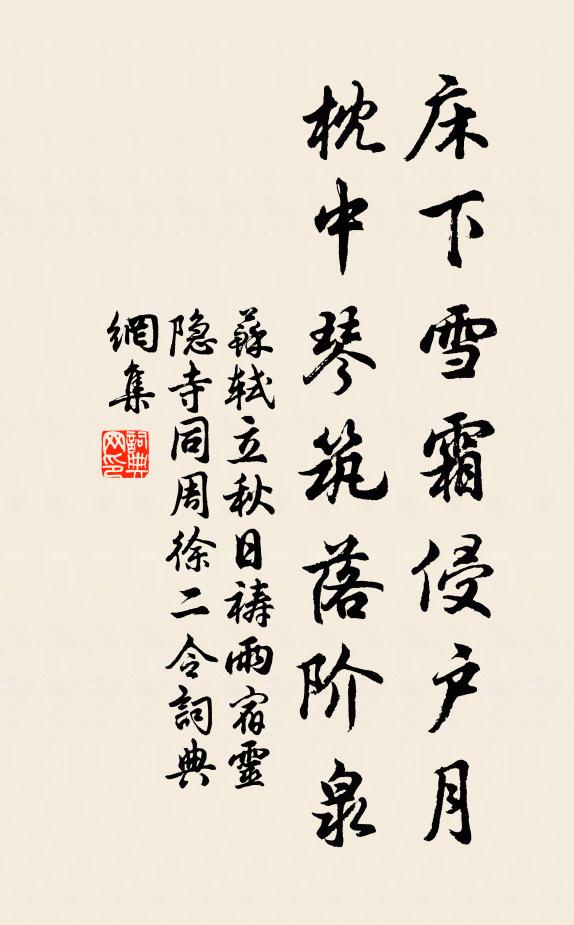 床下雪霜侵户月
枕中琴筑落阶泉
蘇軾立秋日禱雨宿靈
隐寺同周徐二令詞典
網集
詞典
网印